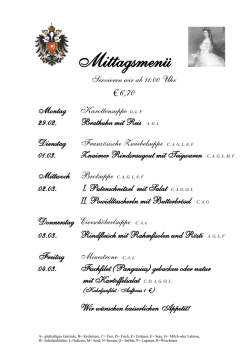 Mittagsmenü
Servieren wir ab 11:00 Uhr
€ 6,70
Montag Karottensuppe G, L, F
29.02. Brathuhn mit Reis A, G, L
Dienstag Französische Zwiebelsuppe C, A, G, L, N, F
01.03. Znaimer Rindsragout mit Teigwaren C, A, G, L, M, F
Mittwoch Brotsuppe C, A, G, L, N, F
02.03. I. Putenschnitzel mit Salat C, A, G, O, L
II. Powidltascherln mit Butterbrösel C, A, G
Donnerstag Eierschöberlsuppe C, A, L
03.03. Rindfleisch mit Rahmfisolen und Rösti A, G, L, F
Freitag Minestrone C, A, L
04.03. Fischfilet (Pangasius) gebacken oder natur
mit Kartoffelsalat C, D, A, G, O, L
(Kabeljaufilet - Aufpreis 1 €)
Wir wünschen kaiserlichen Appetit!
A= gluthaltiges Getreide, B= Krebstiere, C= Eier, D= Fisch, E= Erdnuss, F= Soja, G= Milch oder Laktose,
H= Schalenfrüchte, L=Sellerie, M= Senf, N=Sesam, O= Sulfite, P= Lupinen, R=Weichtiere